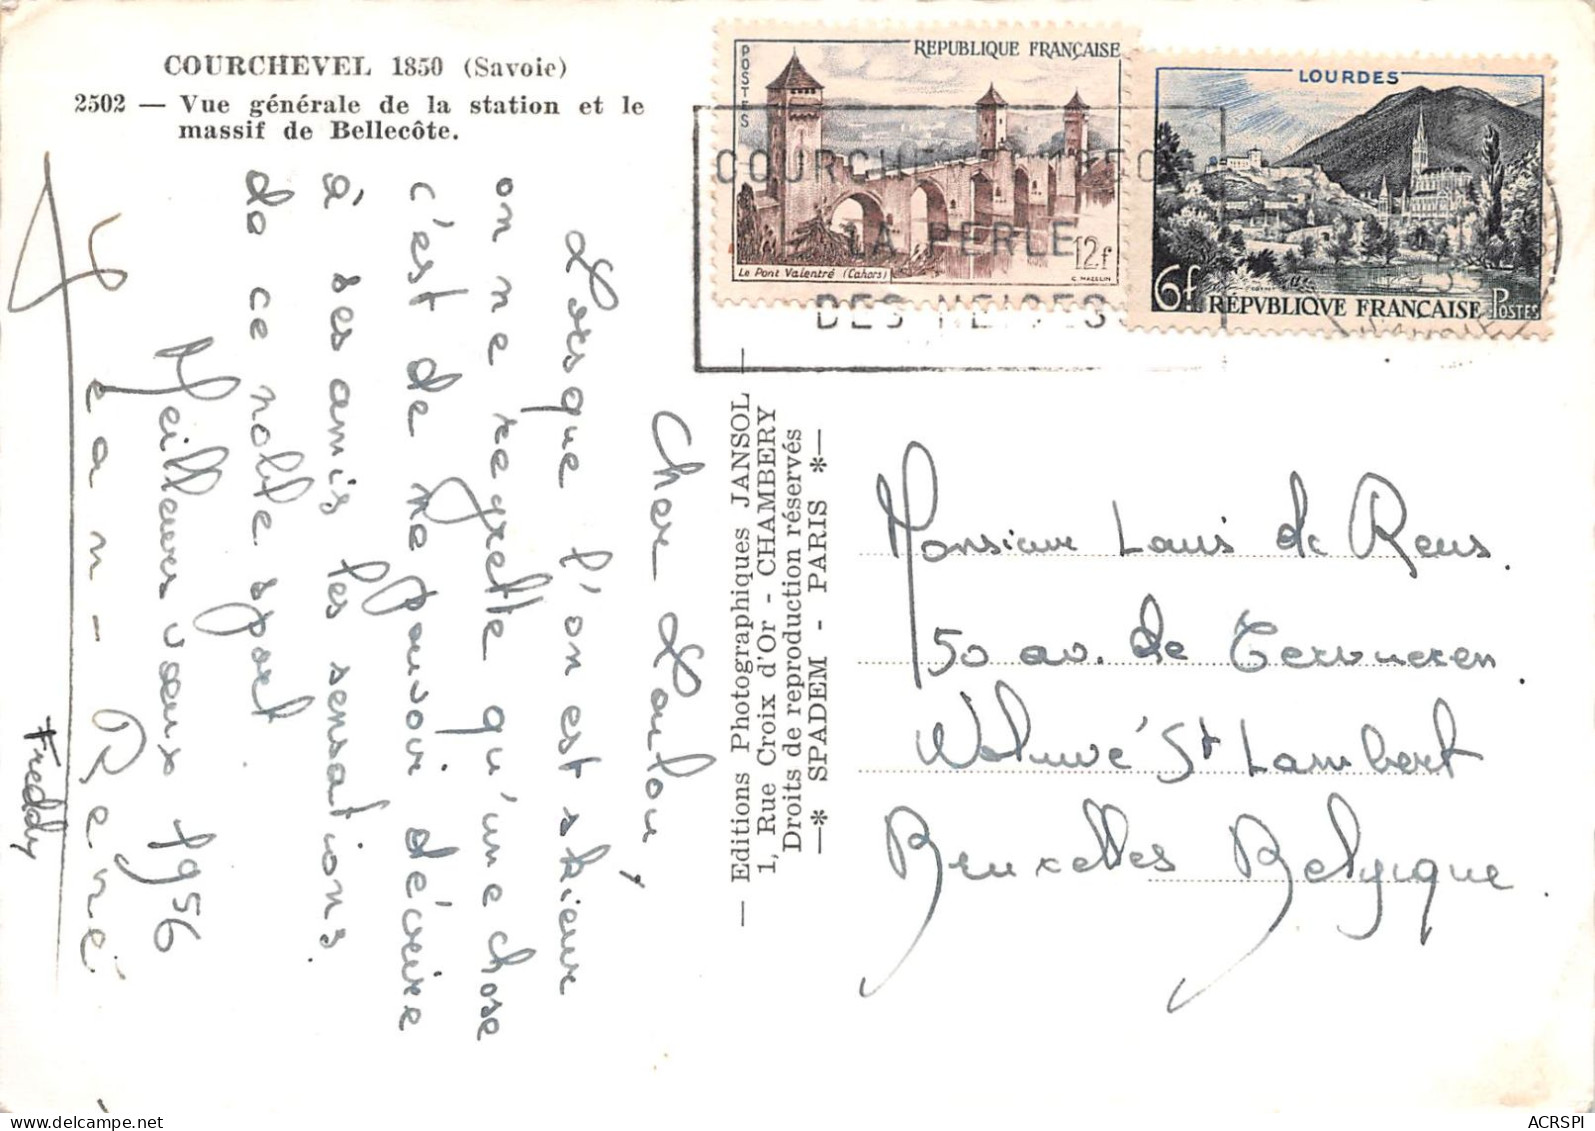 COURCHEVEL 1850 (Savoie)
2502 — Vue générale de la station et le
massif de Bellecôte.
Cher Loulou,
Lorsque l'on est skieur
on ne regrette qu'une chose
c'est de ne pouvoir décrire
à ses amis les sensations
de ce noble sport
Meilleurs vœux 1956
Jean-René
Freddy
— Editions Photographiques JANSOL —
1, Rue Croix d'Or - CHAMBERY
Droits de reproduction réservés
—* SPADEM - PARIS *—
POSTES
REPUBLIQUE FRANÇAISE
Le Pont Valentré (Cahors)
12f
C. MAZELIN
LOURDES
6f
RÉPVBLIQVE FRANÇAISE
POSTES
COURCHEVEL 1850
LA PERLE
DES NEIGES
Monsieur Louis de Reus.
50 av. de Tervueren.
Woluwé St Lambert
Bruxelles Belgique.
ACRSPI